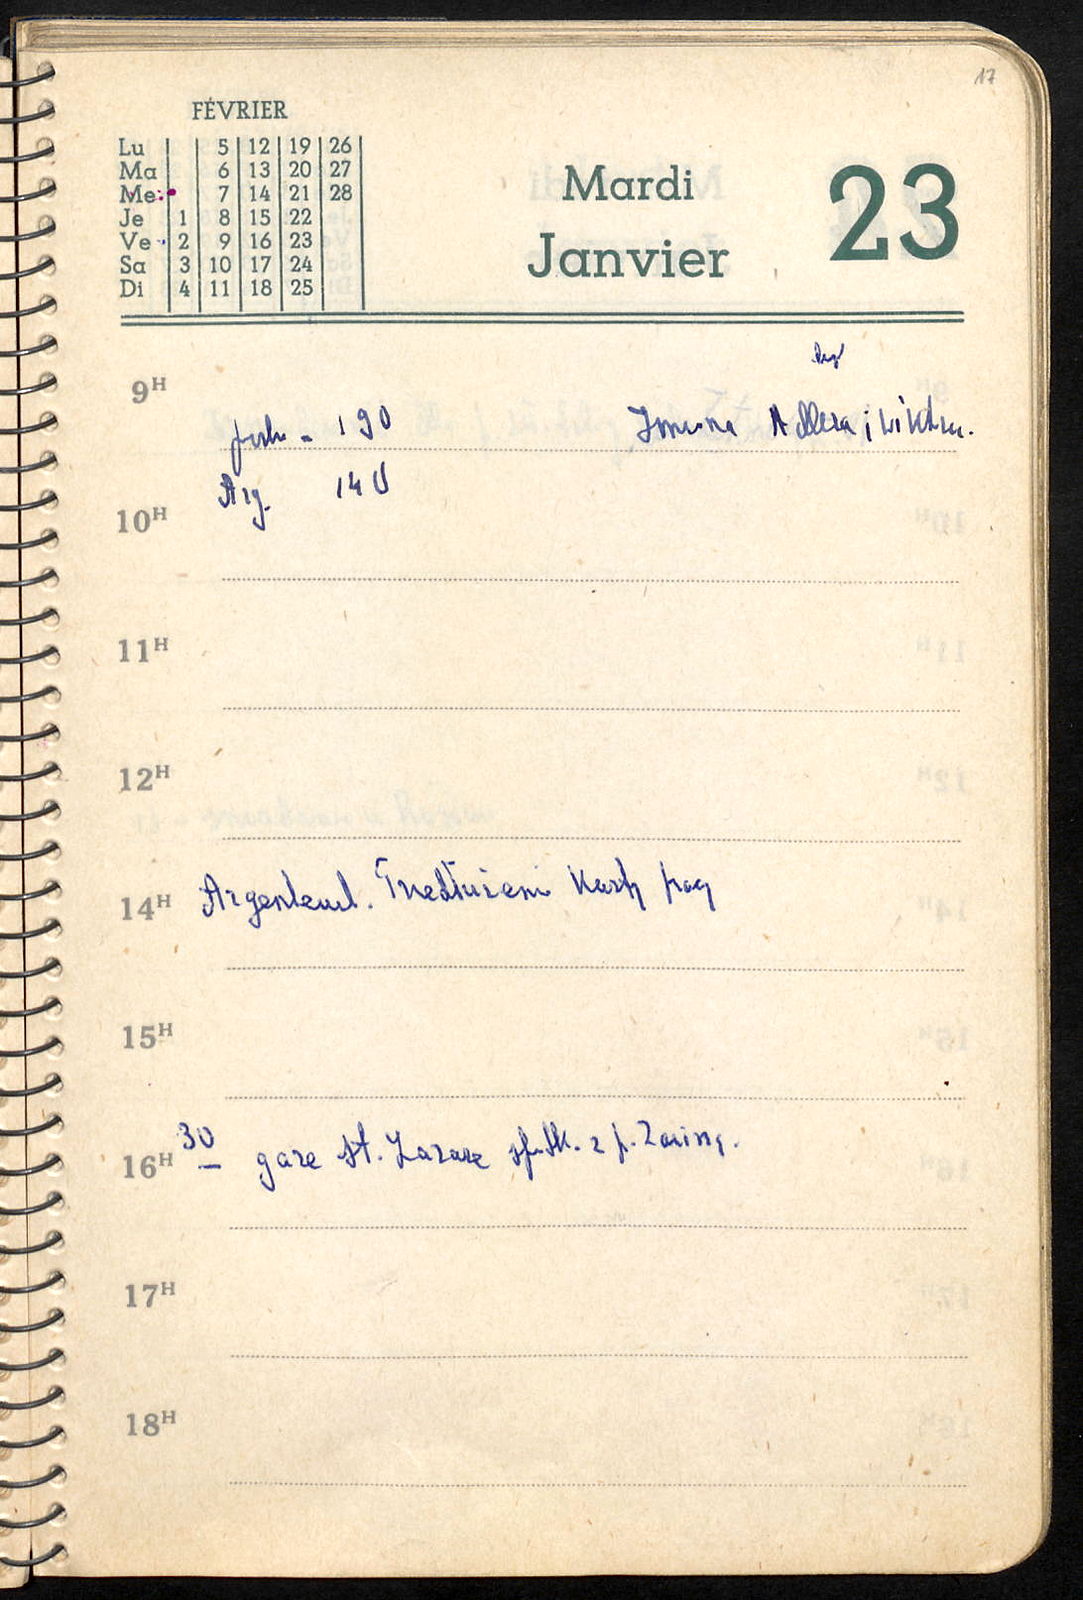 17
FÉVRIER
Lu 5 12 19 26
Ma 6 13 20 27
Me 7 14 21 28
Je 1 8 15 22
Ve 2 9 16 23
Sa 3 10 17 24
Di 4 11 18 25
Mardi
Janvier
23
9H
190
Adlera i
Arg. 140
10H
11H
12H
14H Argenteuil. karty
15H
16H 30 gare St. Lazare z p.
17H
18H